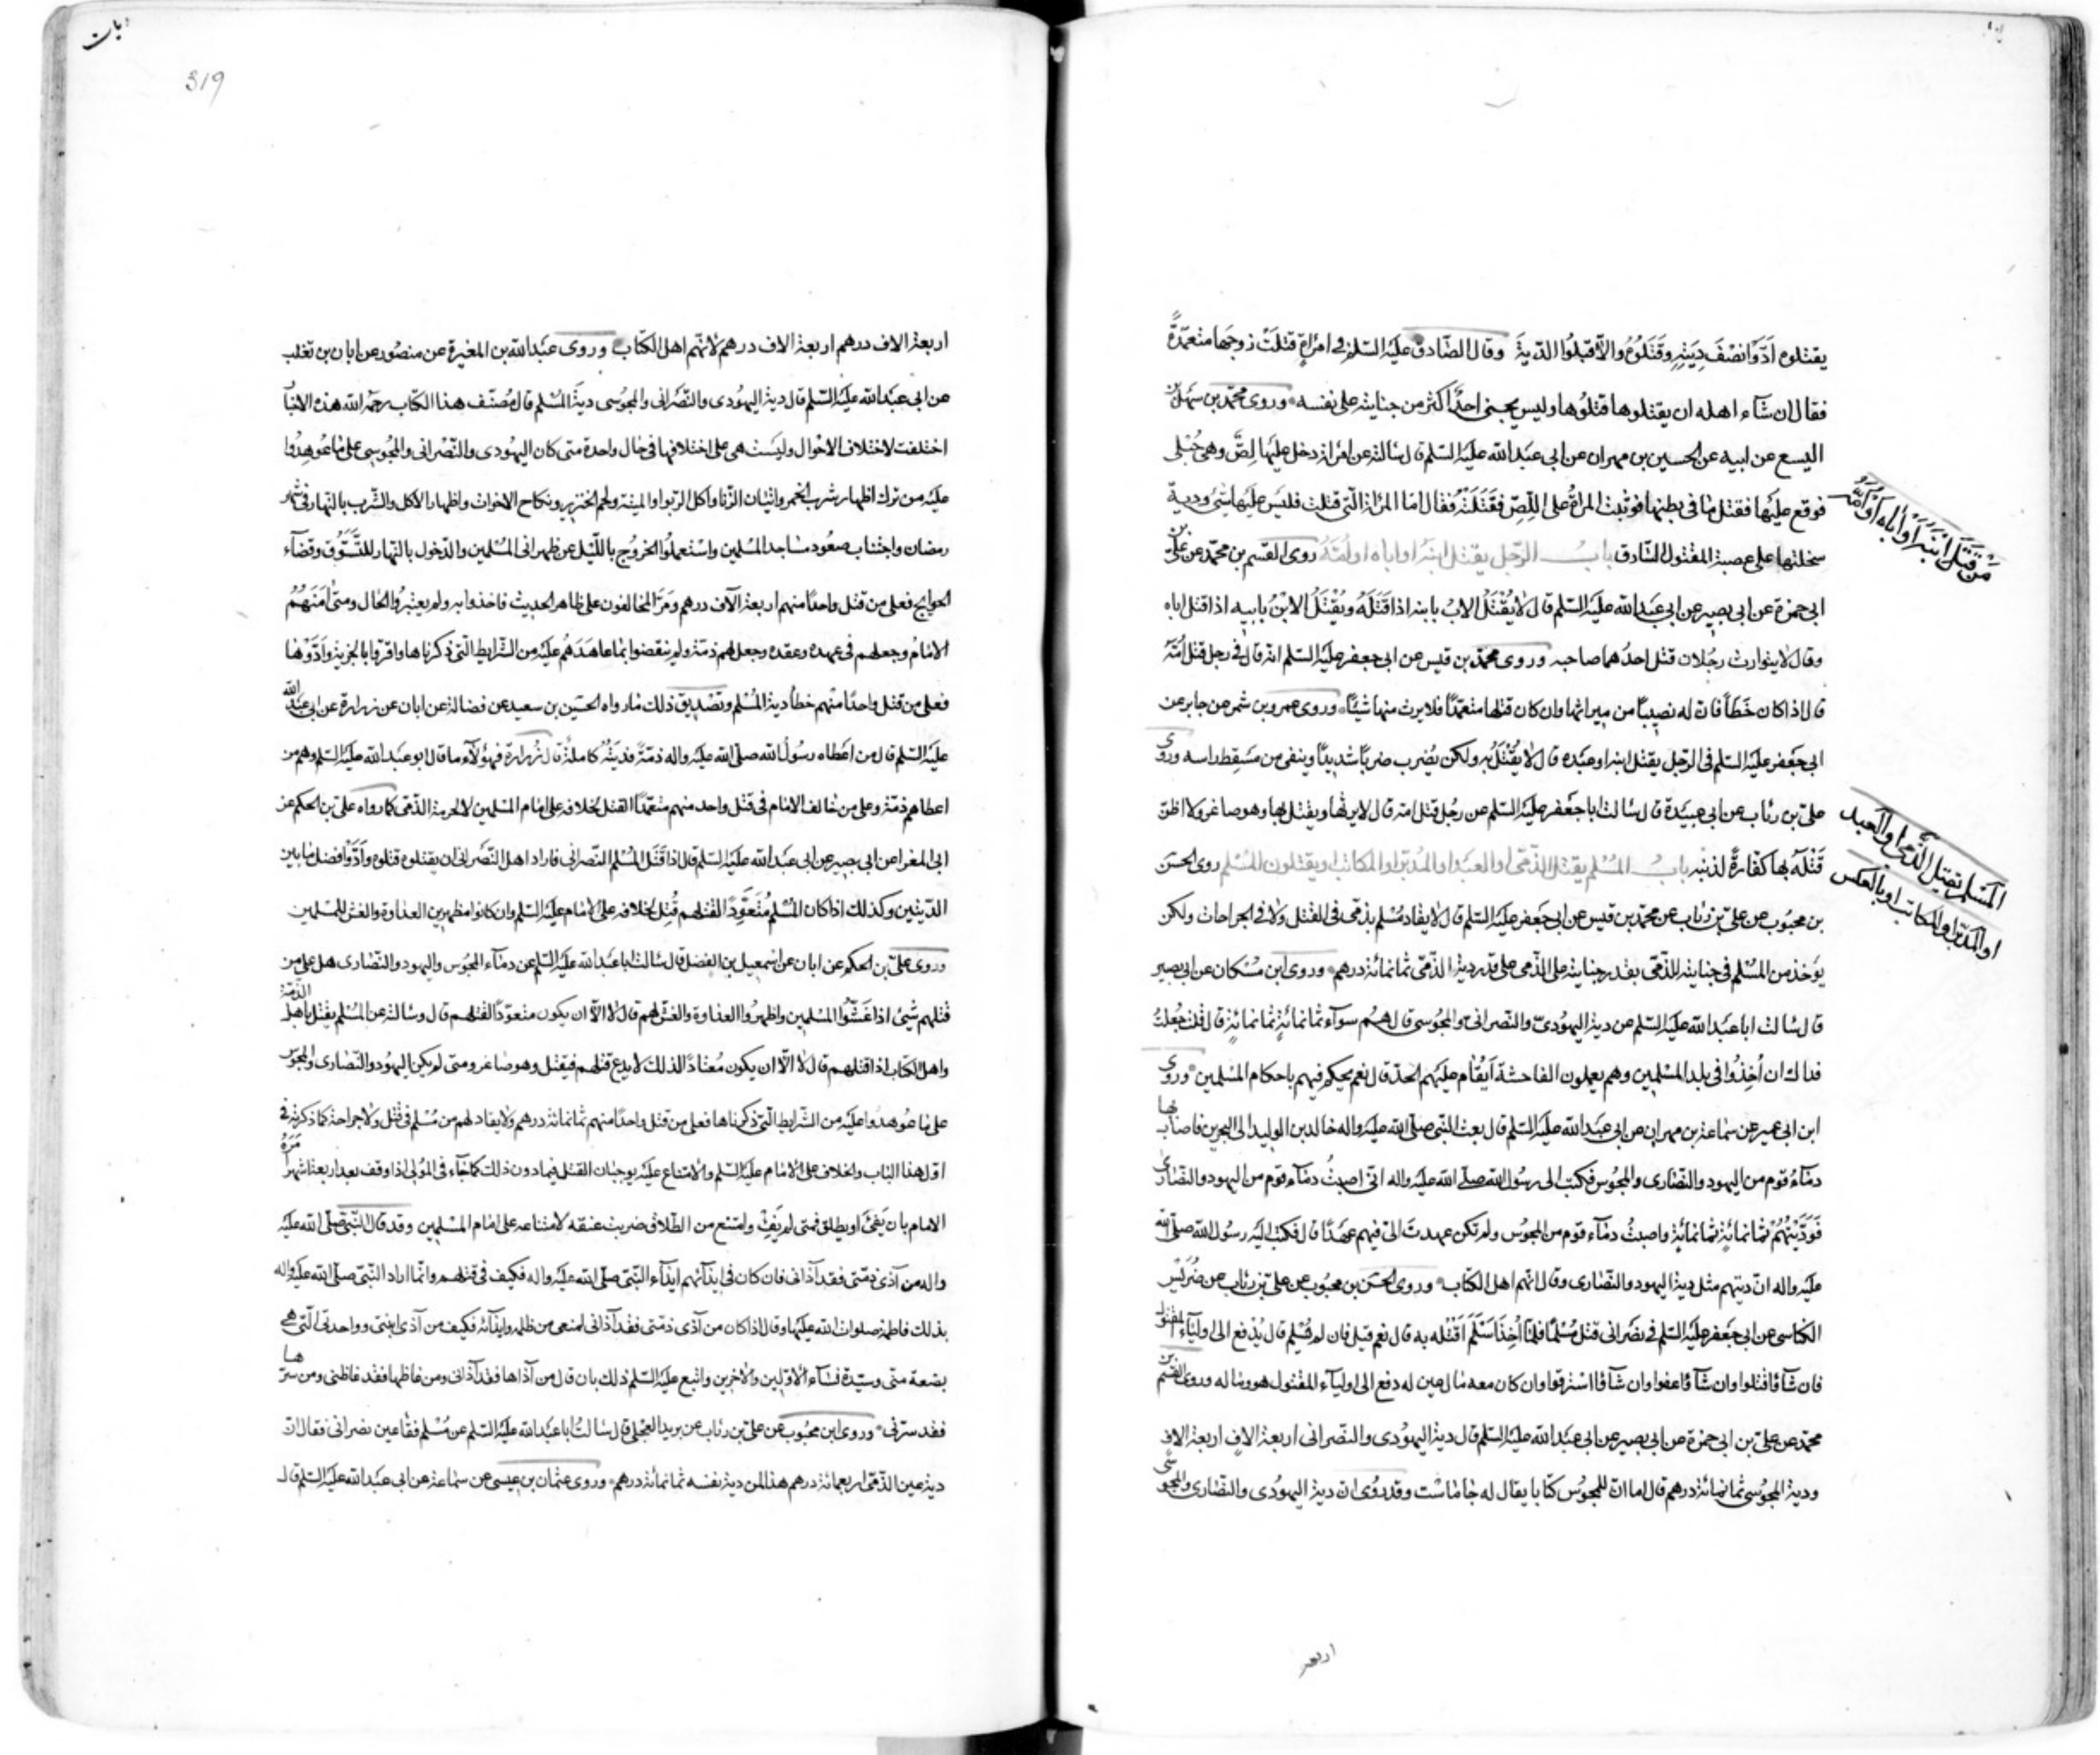 يقتلوه اَدَّوْا نصْفَ دِيَتِهِ وقَتَلُوُهُ والّا قبلُوا الدّيةَ وقال الصّادق عليَه السّلم في امرَاةٍ قتلَتْ زوجَها متعمّدةً
فقال ان شآء اهله ان يقتلوها قتلُوها وليس يجنى احدٌ اكثر من جنايته على نفسه وروى محمّد بن سهل بن
اليسع عن ابيه عن الحسين بن مهران عن ابى عبَد الله عليَه السّلم قال سالته عن امراة دخل عليها لِصٌّ وهى حُبْلى
فوقع عليَها فقتل مٰا فى بطنها فوثبت المراةُ على اللِصّ فقَتَلَتْهُ فقال امّا المراة الّتى قتلت فليَس عليَها شئ ودية
سخلتها على عصبة المقتول السّارق بابُ الرّجل يقتل ابنهُ او اباه او اُمّهُ روى القسم بن محمّد عن علىّ بن
ابى حمزة عن ابى بصير عن ابى عبَد الله عليَه السّلم قال لاٰ يُقْتَلُ الابُ بابنه اذا قَتَلَهُ ويُقْتَلُ الابْنُ بابيه اذا قتل اباه
وقال لا يتوارث رجُلان قتل احدُهما صاحبه وروى محمّد بن قيس عن ابى جعفر عليَه السّلم انّه قال فى رجل قتل اُمّهُ
قال اذا كان خَطَأً فانّ له نصيبًا من ميراثها وان كان قتلها متعمّدًا فلا يرث منها شيًئا وروى عمرو بن شمر عن جابر عن
ابى جَعفر عليَه السّلم فى الرّجل يقتل ابنه او عبَده قال لا يُقْتَلُ به ولكن يُضرب ضربًا شديدًا وينفى من مسَقِط راسه وروى
علىّ بن رئاب عن ابى عبيَدة قال سٰالت ابا جعَفر عليَه السّلم عن رجُل قتل امّه قال لا يرثها ويقتل بها وهو صاغر ولا اظنّ
قَتْلَهُ بها كفّارةً لذنبه بابُ المسْلم يقتل الذّمّى او العبَد او المُدبّر او المكاتب او يقتلون المُسْلم روى الحسَن
بن محبُوب عن علىّ بن رئاب عن محمّد بن قيس عن ابى جَعفر عليَه السّلم قال لا يقاد مُسْلم بذمّى فى القتل ولا فى الجراحات ولكن
يوَخذ من المسْلم فى جنايته للذمّى بقدر جنايته على الذمى على قدر دية الذّمّى ثمانمائة درهم وروى ابن مُسْكان عن ابى بصير
قال سٰالت ابا عبَد الله عليَه السّلم عن دية اليهودىّ والنّصرانىّ والمجُوسى قال هُم سواء ثمانمائةٍ ثمانمائةٍ قال قلت جُعلتُ
فداك ان اُخِذُوا فى بلد المسْلمين وهم يعملون الفاحشة اَيُقٰام عليَهم الحدّ قال نعم يحكم فيهم باحكام المسْلمين وروى
ابن ابى عمير عن سمٰاعة بن مهران عن ابى عبَد الله عليَه السّلم قال بعث النّبى صلّى الله عليَه واله خالد بن الوليد الى البحرين فاصٰاب بها
دمٰآءُ قوم من اليهود والنّصٰارى والمجُوس فكتب الى رسُول الله صلّى الله عليَه واله انّى اصبتُ دمٰآء قوم من اليهود والنّصٰارى
فَوَدَّيْتُهُمْ ثمٰانمائةٍ ثمٰانمائةٍ واصبتُ دمٰآء قوم من المجُوس ولم تكن عهدتَ الىّ فيهم عهَدًا قال فكتب اليَه رسُول الله صلّى الله
عليَه واله انّ ديتهم مثل دية اليهود والنّصٰارى وقال انّهم اهل الكتاب وروى الحسَن بن محبُوب عن علىّ بن رئاب عن ضُرَيْس
الكناسى عن ابى جَعفر عليَه السّلم فى نصَرانى قتل مُسْلمًا فلمّا اُخِذَ اسَْلَمَ اقتْله به قال نعم قيل فان لم يُسْلم قال يُدفع الى اوليٰآء المقتول
فان شٰآؤا قتلوا وان شٰآؤا عفوا وان شٰآؤا اسْترقّوا وان كان معه مٰال عين له دفع الى اوليآء المقتول هو ومٰاله وروى القسم بن
محمّد عن علىّ بن ابى حمزة عن ابى بصير عن ابى عبَد الله عليَه السّلم قال دية اليهُودى والنصّرانى اربعة الافٍ اربعة الافٍ
ودية المجُوسى ثمٰانمٰائة درهم قال اما انّ للمجُوس كتٰابا يقال له جٰامٰاسْت وقد رُوى انّ دية اليهُودى والنّصٰارى والمجوسى
مَنْ قَتَلَ ابْنَهُ اَوْ اَباهُ اَوْ اُمَّهُ
المسْلم يقتل الذّمّى او العبد
او المدبّر او المكاتب او بالعكس
اربعة
319
اربعة الاف درهم اربعة الاف درهم لانّهم اهل الكتٰاب وروى عبَد الله بن المغيرة عن منصُور عن ابان بن تغلب
عن ابى عبَد الله عليَه السّلم قال دية اليهُودى والنّصَرانى والمجُوسى ديةَ المُسْلم قال مُصنّف هذا الكتٰاب رحمه الله هذه الاخبٰار
اختلفت لاختلاف الاحْوال وليَست هى على اختلافها فى حٰال واحدة متى كان اليهُودى والنّصْرانى والمجُوسى على مٰا عُوهِدُوا
عليَه من ترك اظهار شرب الخمر واتيان الزّنا واكل الرّبوا والميتة ولحم الخنزير ونكاح الاخوات واظهار الاكل والشّرب بالنّهار فى شهر
رمضان واجتناب صعُود مسٰاجد المُسْلمين واسْتعملُوا الخرُوج بالليَل عن ظهرانى المُسْلمين والدّخول بالنّهار للتّسَوُّق وقضآء
الحوايج فعلى من قتل واحدًا منهم اربعة الآف درهم ومَرَّ المخٰالفون على ظاهر الحديث فاخذوا به ولم يعتبرُوا الحال ومتىٰ امَنَهُمُ
الامٰامُ وجعلهم فى عهده وعقده وجعل لهم ذمّة ولم ينقضوا مٰا عاهَدَهُم عليَه من الشّرايط الّتى ذكرناها واقرّوا بالجزية وَادَّوْهٰا
فعلى من قتل واحدًا منْهم خطأً دية المُسْلم وتصْديق ذلك مٰا رواه الحسَين بن سعيد عن فضالة عن ابان عن زرارة عن ابى عبَد الله
عليَه السّلم قال من اعَطاه رسُولُ الله صلّى الله عليَه واله ذمّةً فديَتُهُ كاملةٌ قال زُرارة فهؤلآء ما قال ابو عبَد الله عليَه السّلم وهم من
اعطاهم ذمّة وعلى من خٰالف الامام فى قتل واحد منهم متعمّدًا القتل لخلافه على امٰام المسْلمين لا لحرمة الذّمّى كما رواه علىّ بن الحكم عن
ابى المغرا عن ابى بصير عن ابى عبَد الله عليَه السّلم قال اذا قَتَلَ المُسْلم النّصرانى فاراد اهل النّصَرانى ان يقتلوه قتلوه وَادّوْا فضل مٰا بين
الدّيتين وكذلك اذا كان المُسْلم مُتَعَوِّدًا لقتلهم قُتِل لخلافه على الامٰام عليَه السّلم وان كانوا مظهرين العداوة والغش للمسْلمين
وروى علىّ بن الحكم عن ابان عن اسْمعيل بن الفضل قال سٰالت ابا عبَد الله عليَه السّلم عن دمٰآء المجُوس واليهود والنّصٰارى هل على من
قتلهم شئ اذا غَشُّوا المسْلمين واظهرُوا العداوة والغش لهم قال لا الّا ان يكون متعوّدًا لقتلهم قال وسٰالته عن المُسْلم يقتل باهل الذّمّة
واهل الكتاب اذا قتلهم قال لا الّا ان يكون مُعتٰادًا لذلك لا يدع قتلهم فيقتل وهو صٰاغر ومتى لم يكن اليهُود والنّصٰارى والمجوس
على مٰا عُوهدوا عليَه من الشّرايط الّتى ذكرناها فعلى من قتل واحدًا منهم ثمٰانمٰائة درهم ولا يقاد لهم من مُسْلم فى قتل ولا جراحة كما ذكرته فى
اوّل هذا البٰاب والخلاف على الامٰام عليَه السّلم والامتناع عليَه يوجبٰان القتل فيما دون ذلك كما جٰآء فى المُولى اذا وقف بعد اربعة اشهر امَرَهُ
الامام بان يَفئَ او يطلق فمتى لم يَفئْ وامتنع من الطّلاق ضربت عنقه لامتناعه على امام المسْلمين وقد قال النّبىّ صلّى الله عليَه
واله من آذى ذمّتى فقد آذانى فان كان فى ايذآئهم ايذآء النّبىّ صلّى الله عليَه واله فكيف فى قتلهم وانّما اراد النّبىّ صلّى الله عليَه واله
بذلك فاطمة صلوات الله عليَها وقال اذا كان من آذى ذمّتى فقد آذانى لمنعى من ظلمه وايذآئه فكيف من آذى ابنتى وواحدتى الّتى هى
بضعة منّى وسيّدة نسٰآء الاوّلين والاخرين واتبع عليَه السّلم ذلك بان قال من آذاها فقد آذانى ومن غاظها فقد غاظنى ومن سرّها
فقد سرّنى وروى ابن محبُوب عن علىّ بن رئاب عن بريد العجلى قال سٰالتُ ابا عبَد الله عليَه السّلم عن مُسْلم فقأ عين نصرانى فقال انّ
دية عين الذّمّى اربعمائة درهم هذا لمن دية نفسه ثمٰانمٰائة درهم وروى عثمان بن عيسى عن سمٰاعة عن ابى عبَد الله عليَه السّلم قال